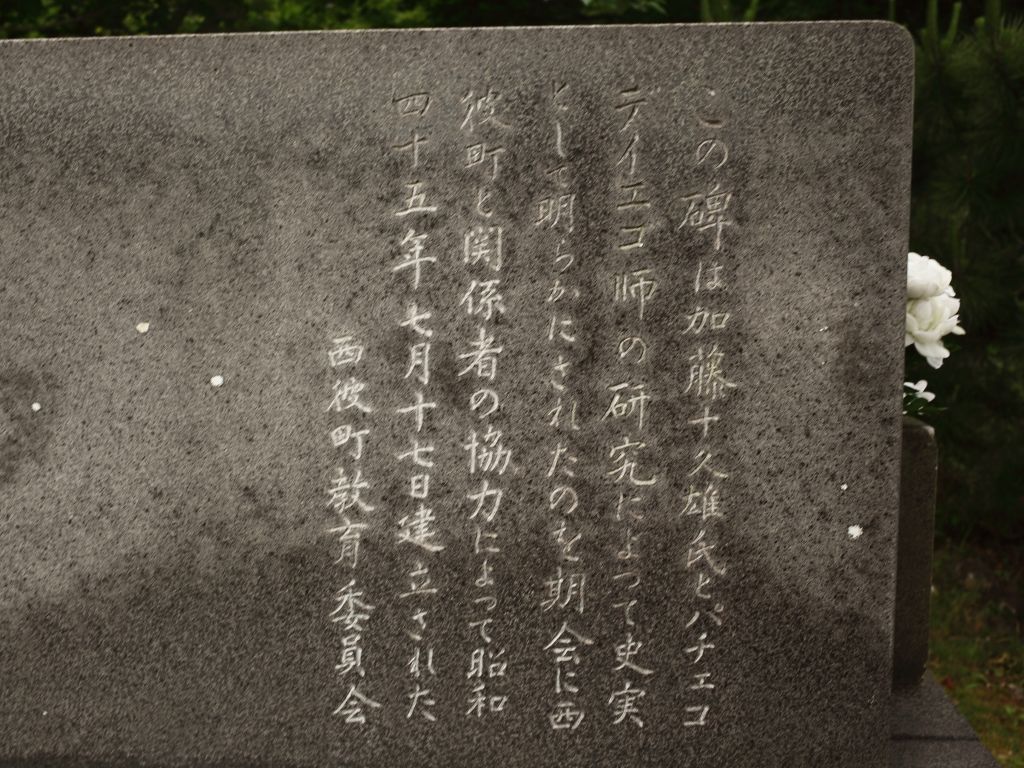 この碑は加藤十久雄氏とパチェコ
ディエコ師の研究によって史実
として明らかにされたのを期会に西
彼町と関係者の協力によって昭和
四十五年七月十七日建立された
西彼町教育委員会